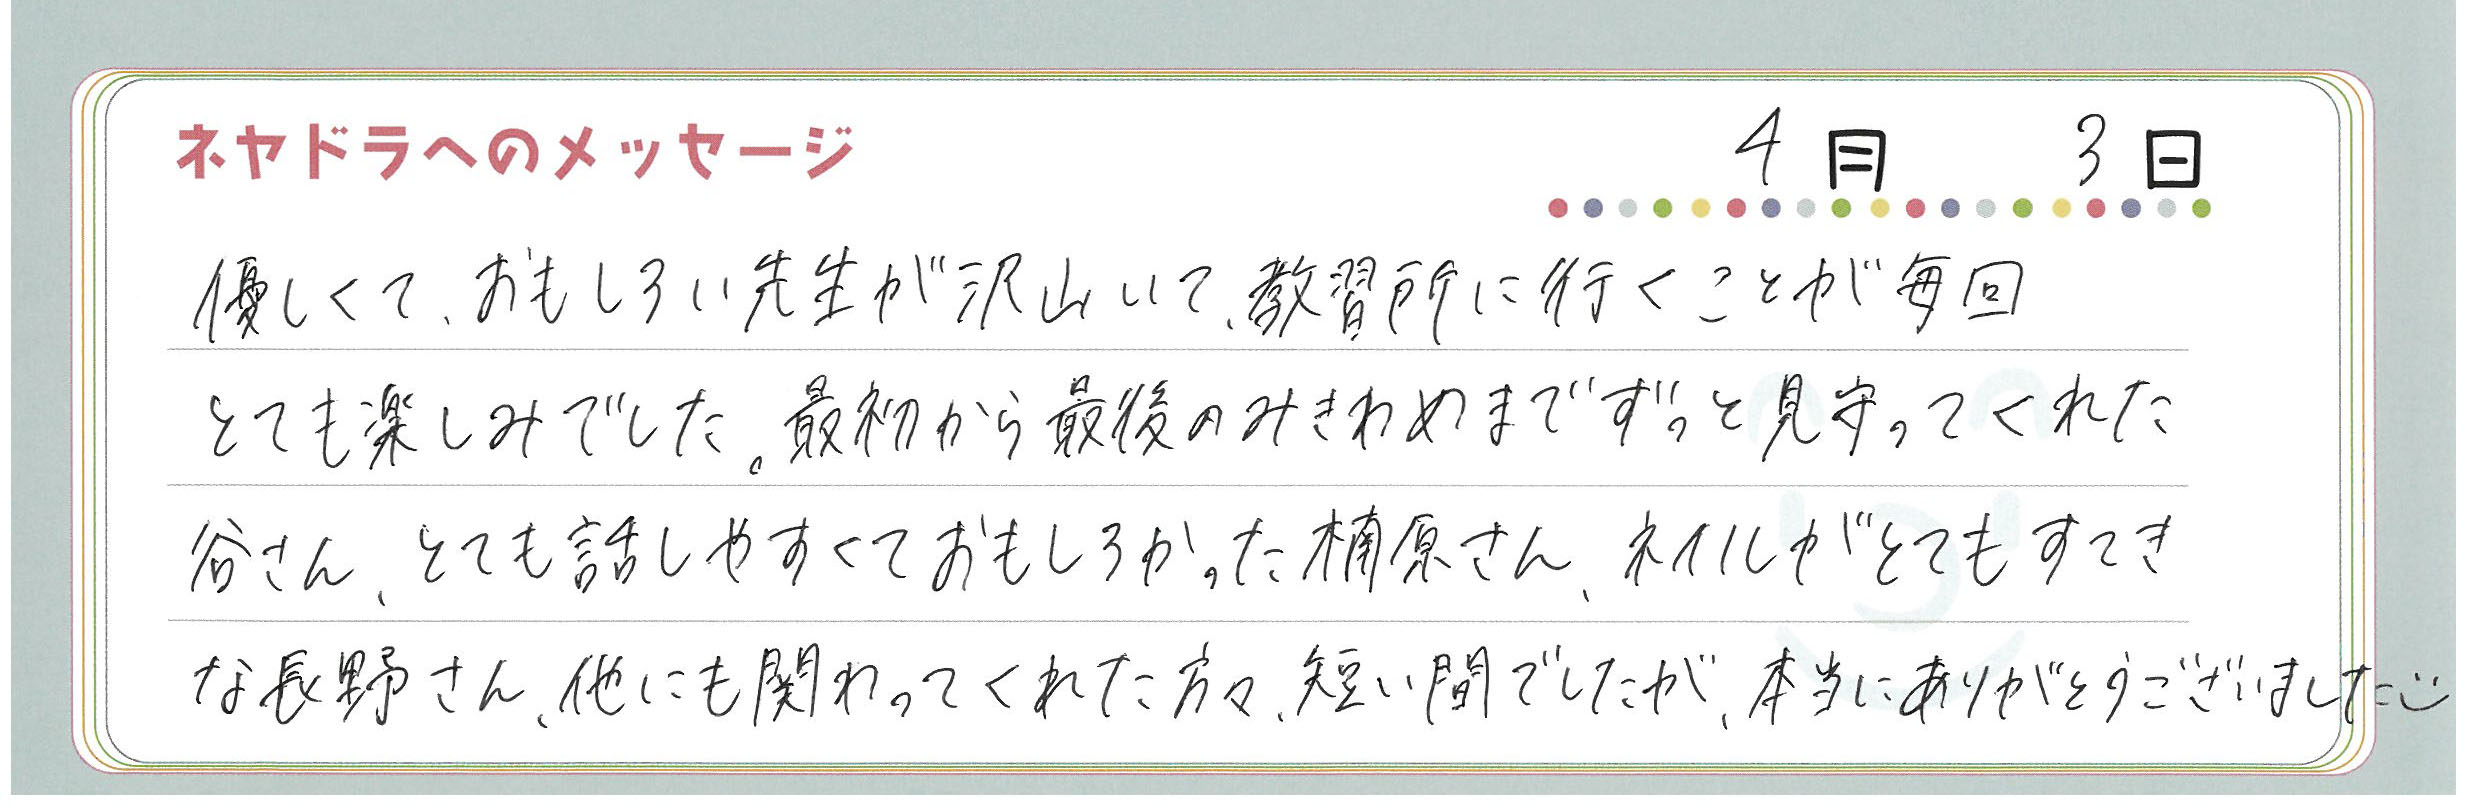 ネヤドラへのメッセージ
4月 3日
優しくて、おもしろい先生が沢山いて、教習所に行くことが毎回
とても楽しみでした。最初から最後のみきわめまでずっと見守ってくれた
谷さん、とても話しやすくておもしろかった楠原さん、ネイルがとてもすてき
な長野さん、他にも関わってくれた方々、短い間でしたが、本当にありがとうございました